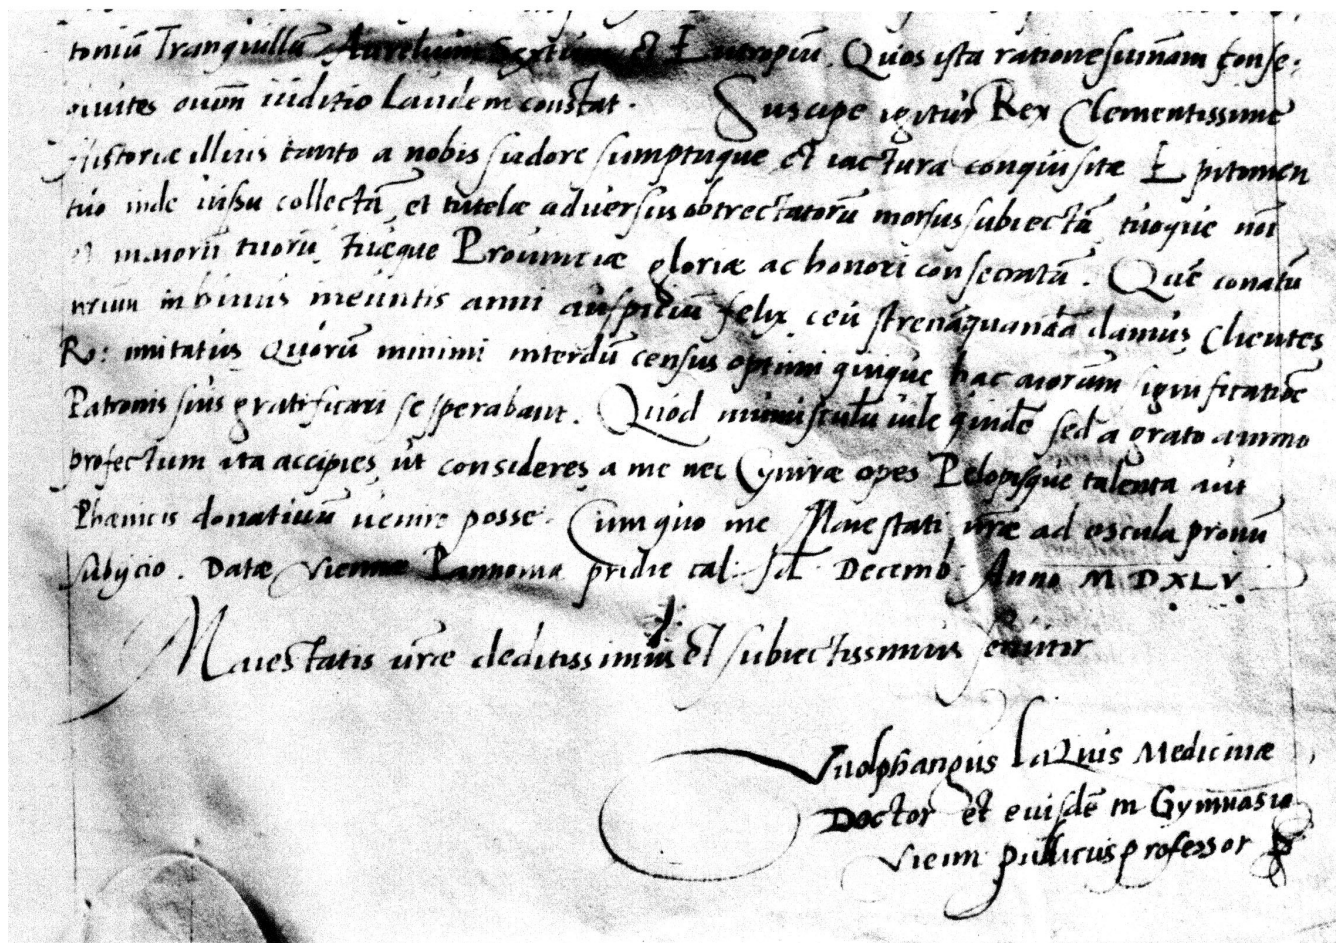 toniū Tranquillū Aurelium Sextum et Eutropiū. Quos ista ratione sum̄am conse-
oīum iuditio Laudem constat. Suscipe igitur Rex Clementissime
Historiæ illius tanto a nobis sudore sumptuque et iactura conquisitæ Epitomen
tuo inde iussu collectā, et tutelæ adversus obtrectatorū morsus subiectā, tuoque noī
maiorū tuorū, tuæque Provinciæ gloriæ ac honori consecratā. Quē conatū
in huius ineuntis anni auspiciū felix ceu strenā quandā damus, Clientes
Ro: imitatus, Quorū minimi interdū census optimi quique hac aīorum significatiōe
Patronis suis gratificari se sperabant. Quod munusculū vile quidē sed a grato animo
profectum ita accipies, ut consideres a me nec Cyniræ opes Pelopisque talenta aut
Phænicis donativum venire posse. Cum quo me Maiestati vr̄æ ad oscula pronū
subijcio. Datæ Viennæ Pannoniæ pridie cal: Decemb: Anno MDXLV.
Maiestatis vr̄æ deditissimus et subiectissimus servitor
Vuolphangus laZius Medicinæ
Doctor et eiusdē in Gymnasio
Vienn publicus professor